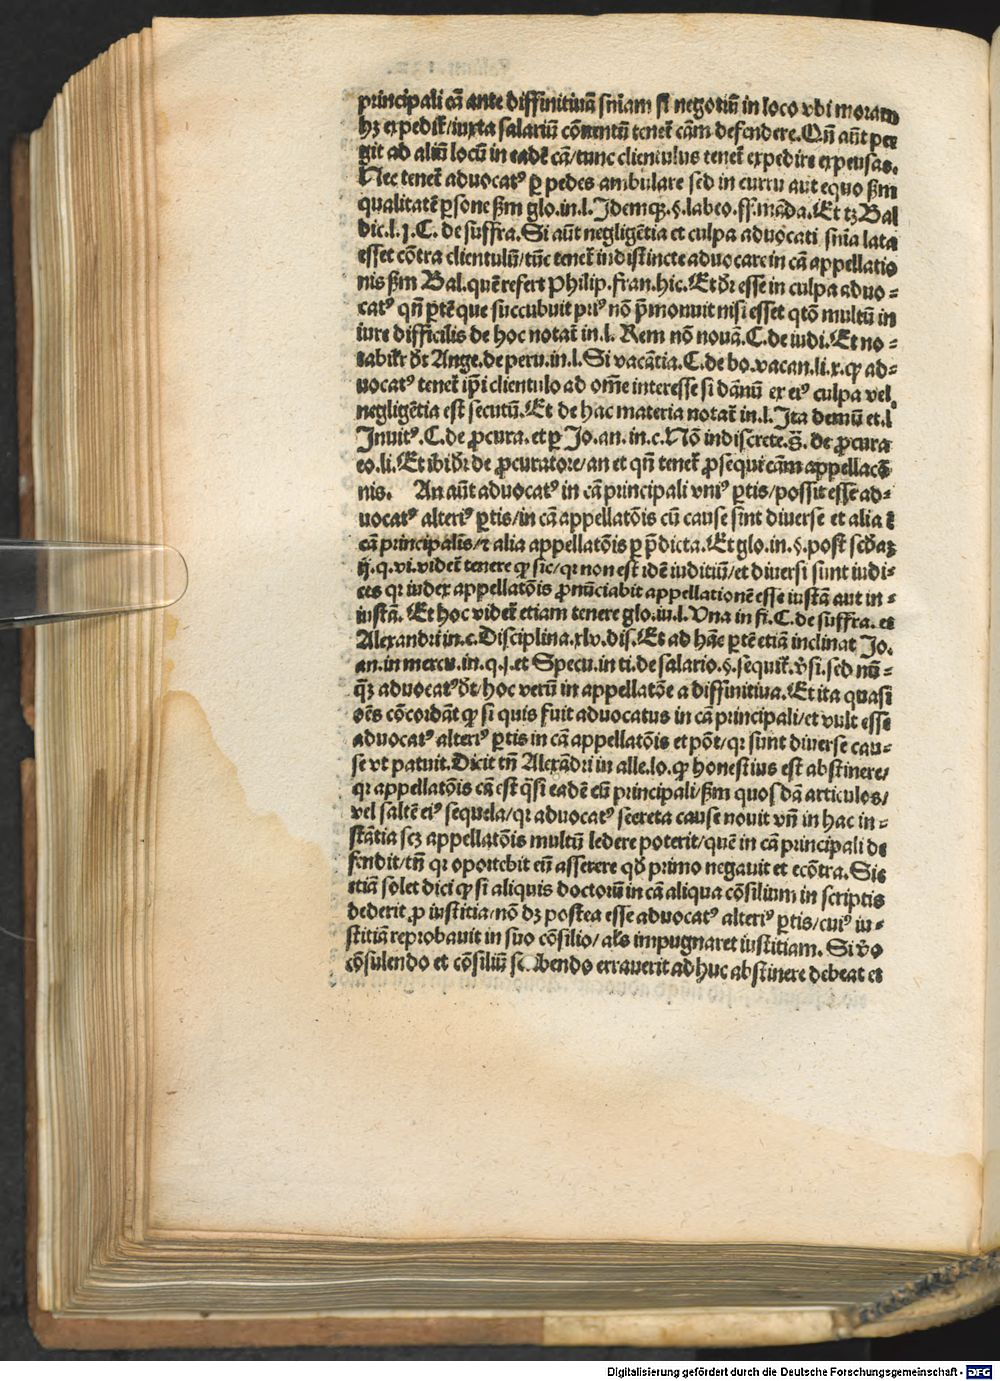 principali cā ante diffinitiuā snīam si negotiū in loco vbi moram
hꝫ expedit᷑/iuxta salariū cōuentū tenet᷑ cām defendere. Qn̄ aūt per
git ad aliū locū in eadē cā/tunc clientulus tenet᷑ expedire expensas.
Nec tenet᷑ aduocatꝰ ꝑ pedes ambulare sed in curru aut equo ẞm
qualitatē ꝑsone ẞm glo. in. l. Idemqꝫ. §. labeo. ff. māda. Et tꝫ Bal
dic. l. j. C. de suffra. Si aūt negligētia et culpa aduocati snīa lata
esset cōtra clientulū/tūc tenet᷑ indistincte aduocare in cā appellatio
nis ẞm Bal. quē refert Philip. fran. hic. Et dr̄ esse in culpa aduo⸗
catꝰ qn̄ ꝑtē que succubuit priꝰ nō p̄monuit nisi esset qtō multū in
iure difficilis de hoc notat᷑ in. l. Rem nō nouā. C. de iudi. Et no⸗
tabilr̄ dt̄ Ange. de peru. in. l. Si vacātia. C. de bo. vacan. li. x. ꝙ ad⸗
uocatꝰ tenet᷑ ip̄i clientulo ad om̄e interesse si dānū ex eiꝰ culpa vel
negligētia est secutū. Et de hac materia notat᷑ in. l. Ita demū et. l
Inuitꝰ. C. de ꝓcura. et ꝑ Jo. an. in. c. Nō indiscrete. §. de ꝓcura
eo. li. Et ibi dr̄ de ꝓcuratore/an et qn̄ tenet᷑ ꝓsequi cām appellacō
nis. An aūt aduocatꝰ in cā principali vniꝰ ꝑtis/possit esse ad⸗
uocatꝰ alteriꝰ ꝑtis/in cā appellatōis cū cause sint diuerse et alia ē
cā principalis/⁊ alia appellatōis ꝑ p̄dicta. Et glo. in. §. post scdaꝫ
ij. q. vi. videt᷑ tenere ꝙ sic/qꝛ non est idē iuditiū/et diuersi sunt iudi⸗
ces qꝛ iudex appellatōis ꝓnūciabit appellationē esse iustā aut in⸗
iustā. Et hoc videt᷑ etiam tenere glo. in. l. Vna in fi. C. de suffra. et
Alexandri in. c. Disciplina. xlv. dis. Et ad hāc ꝑtē etiā inclinat Jo.
an. in mercu. in. q. j. et Specu. in ti. de salario. §. sequit᷑. v̄si. sed nū⸗
qͥꝫ aduocatꝰ dt̄/hoc verū in appellatōe a diffinitiua. Et ita quasi
oēs cōcordāt ꝙ si quis fuit aduocatus in cā principali/et vult esse
aduocatꝰ alteriꝰ ꝑtis in cā appellatōis et pōt/qꝛ sunt diuerse cau⸗
se vt patuit. Dicit tn̄ Alexādri in alle. lo. ꝙ honestius est abstinere/
qꝛ appellatōis cā est q̄si eadē cū principali/ẞm quosdā articulos/
vel saltē eiꝰ sequela/qꝛ aduocatꝰ secreta cause nouit vn̄ in hac in⸗
stātia scꝫ appellatōis multū ledere poterit/quē in cā principali de
fendit/tn̄ qꝛ oportebit eū asserere qd̄ primo negauit et ecōtra. Sic
etiā solet dici ꝙ si aliquis doctorū in cā aliqua cōsilium in scriptis
dederit ꝓ iustitia/nō dꝫ postea esse aduocatꝰ alteriꝰ ꝑtis/cuiꝰ iu⸗
stitiā reprobauit in suo cōsilio/als impugnaret iustitiam. Si v̄o
cōsulendo et cōsiliū errauerit adhuc abstinere debeat et
Digitalisierung gefördert durch die Deutsche Forschungsgemeinschaft - DFG